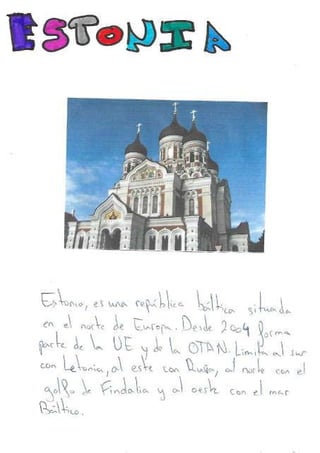 ESTONIA
Estonia, es una república báltica situada
en el norte de Europa. Desde 2004 forma
parte de la UE y de la OTAN. Limita al sur
con Letonia, al este con Rusia, al norte con el
golfo de Findalia y al oeste con el mar
Báltico.